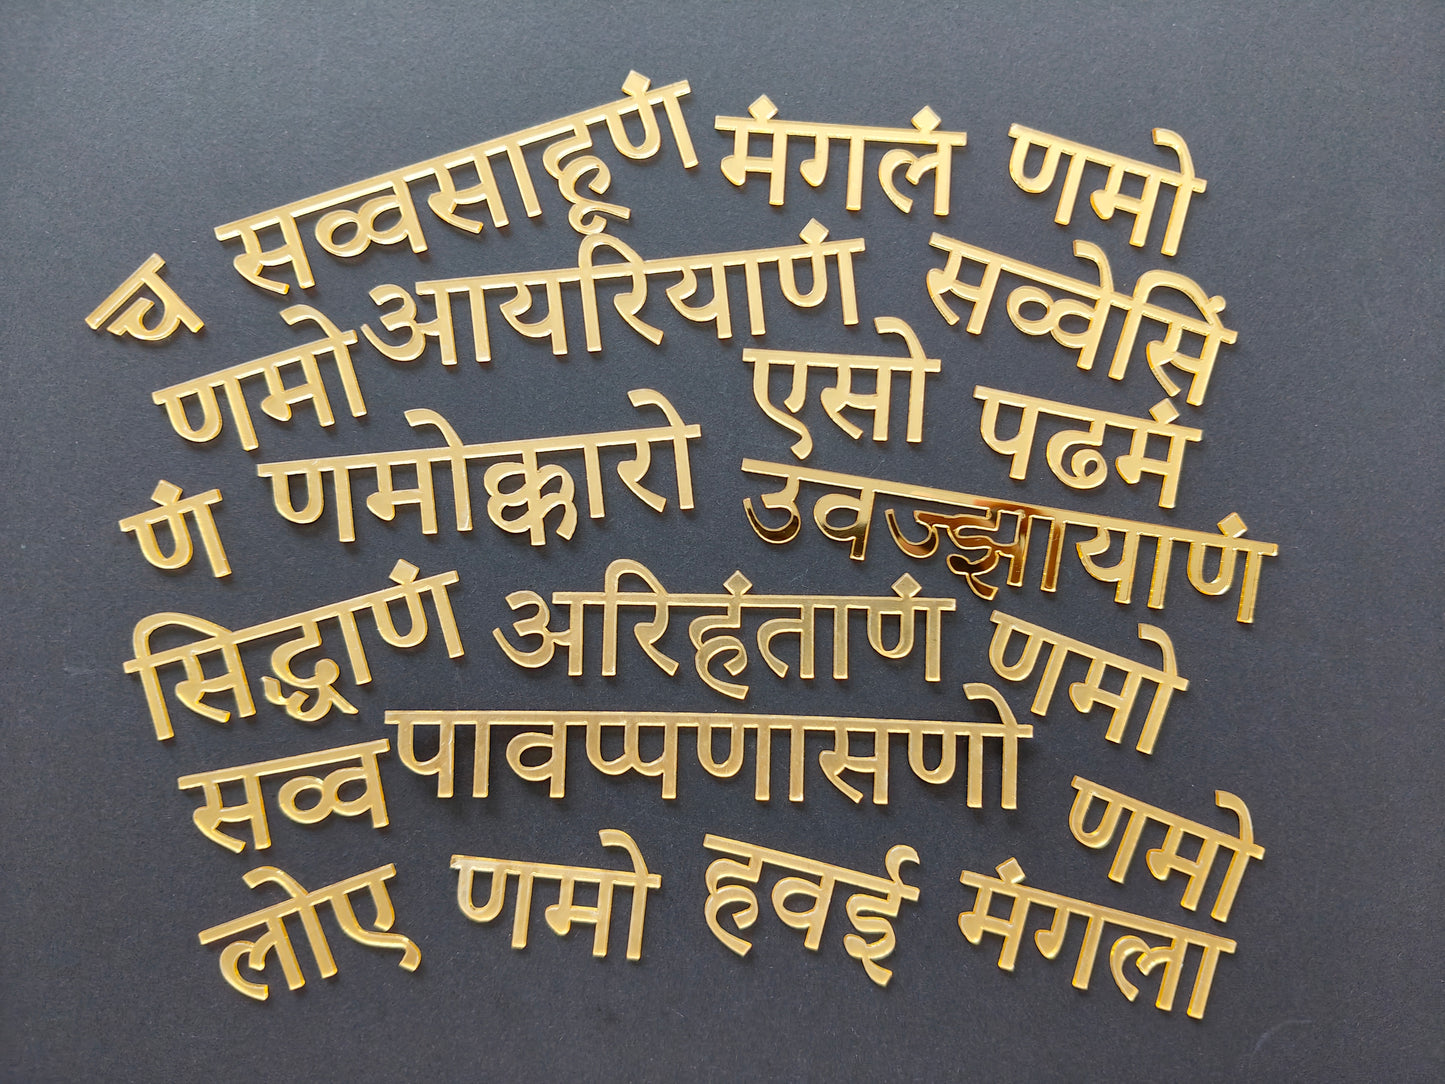 च सव्वसाहूणं मंगलं णमो
णमो आयरियाणं सव्वेसिं
णं णमोक्कारो एसो पढमं
उवज्झायाणं
सिद्धाणं अरिहंताणं णमो
सव्व पावप्पणासणो णमो
लोए णमो हवई मंगला